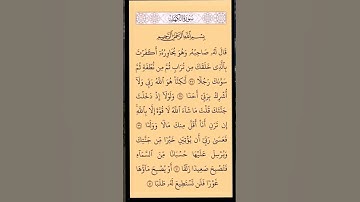 سورة الكهف
بسم الله الرحمن الرحيم
قال له صاحبه وهو يحاوره أكفرت
بالذي خلقك من تراب ثم من نطفة ثم
سوىك رجلا لكنا هو الله ربي ولا
أشرك بربي أحدا ولولا إذ دخلت
جنتك قلت ما شاء الله لا قوة إلا بالله
إن ترن أنا أقل منك مالا وولدا
فعسى ربي أن يؤتين خيرا من جنتك
ويرسل عليها حسبانا من السماء
فتصبح صعيدا زلقا أو يصبح ماؤها
غورا فلن تستطيع له طلبا